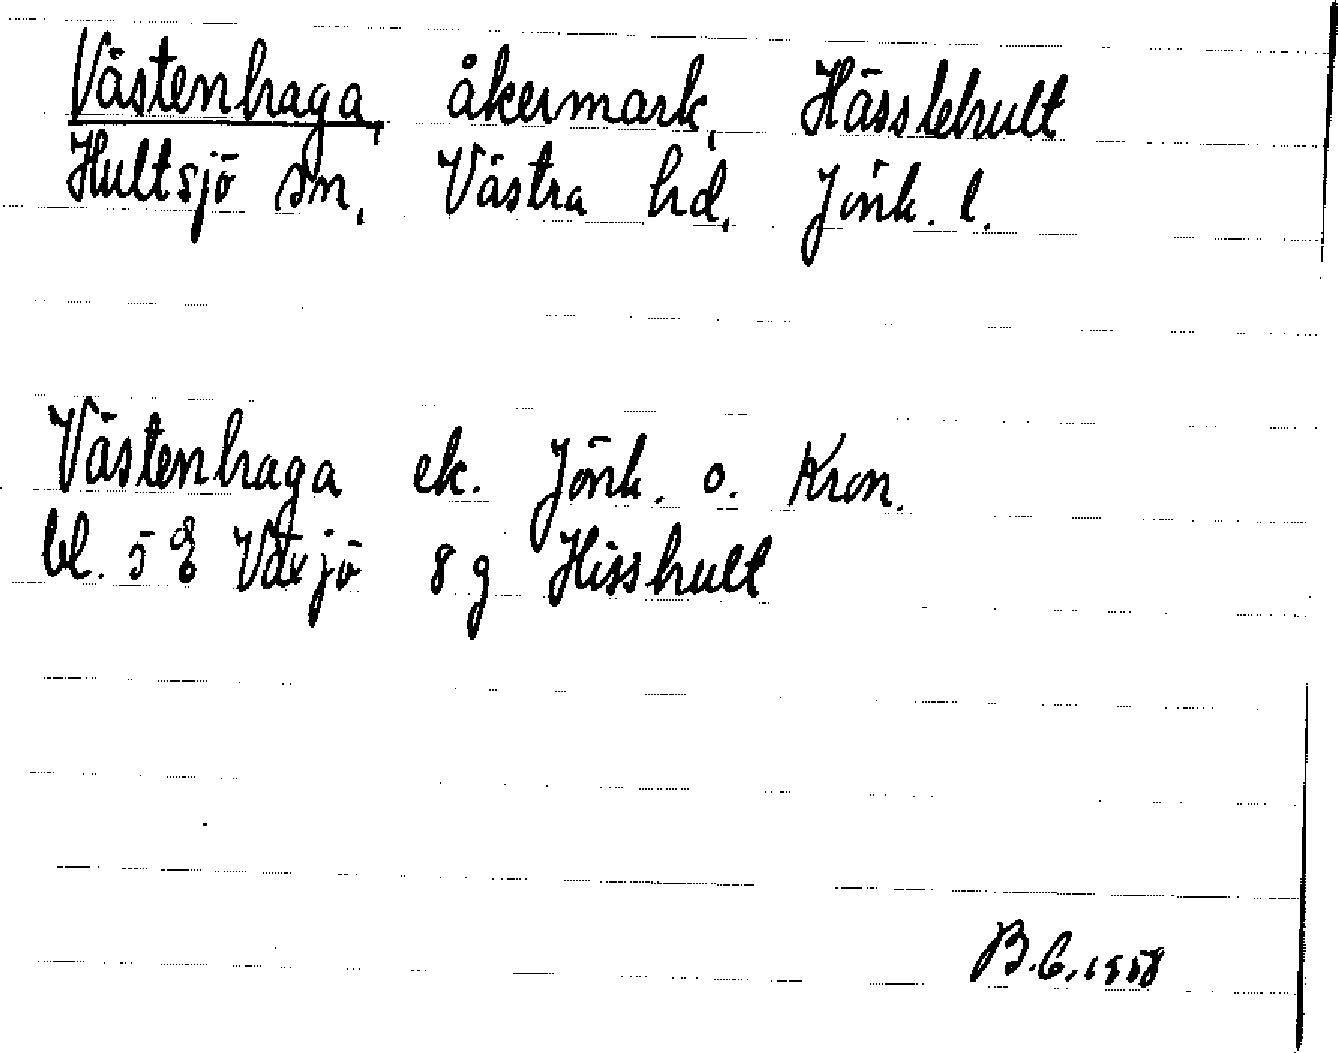 Västenhaga, åkermark, Hässlehult
Hultsjö sn, Västra hd, Jönk. l.
Västenhaga ek. Jönk. o. Kron.
bl. 5 E Växjö 8 g Hisshult
B.C. 1958